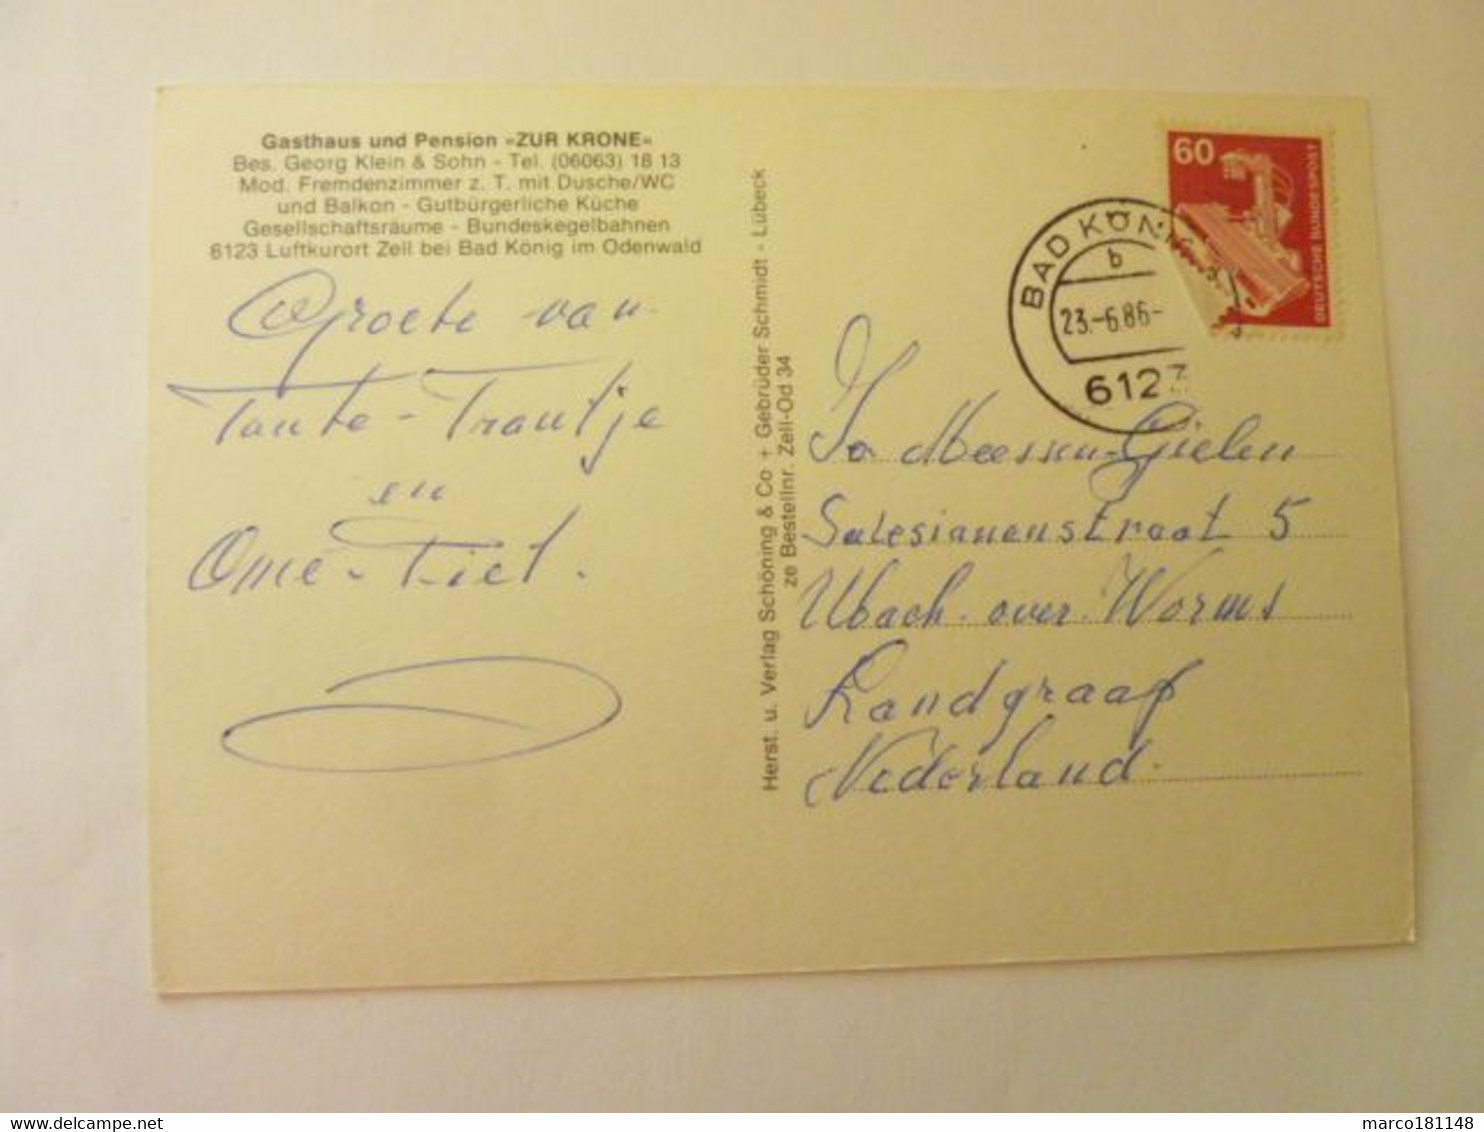 Gasthaus und Pension »ZUR KRONE«
Bes. Georg Klein & Sohn - Tel. (06063) 18 13
Mod. Fremdenzimmer z. T. mit Dusche/WC
und Balkon - Gutbürgerliche Küche
Gesellschaftsräume - Bundeskegelbahnen
6123 Luftkurort Zell bei Bad König im Odenwald
Groete van
Tante - Trautje
en
Ome - Tiel.
Herst. u. Verlag Schöning & Co + Gebrüder Schmidt - Lübeck
ze Bestellnr. Zell-Od 34
60
DEUTSCHE BUNDESPOST
BAD KÖNIG
b
23.-6.86-
6123
Jo Meessen-Gielen
Salesianenstraat 5
Ubach. over. Worms
Landgraaf
Nederland.
delcampe.net
marco181148